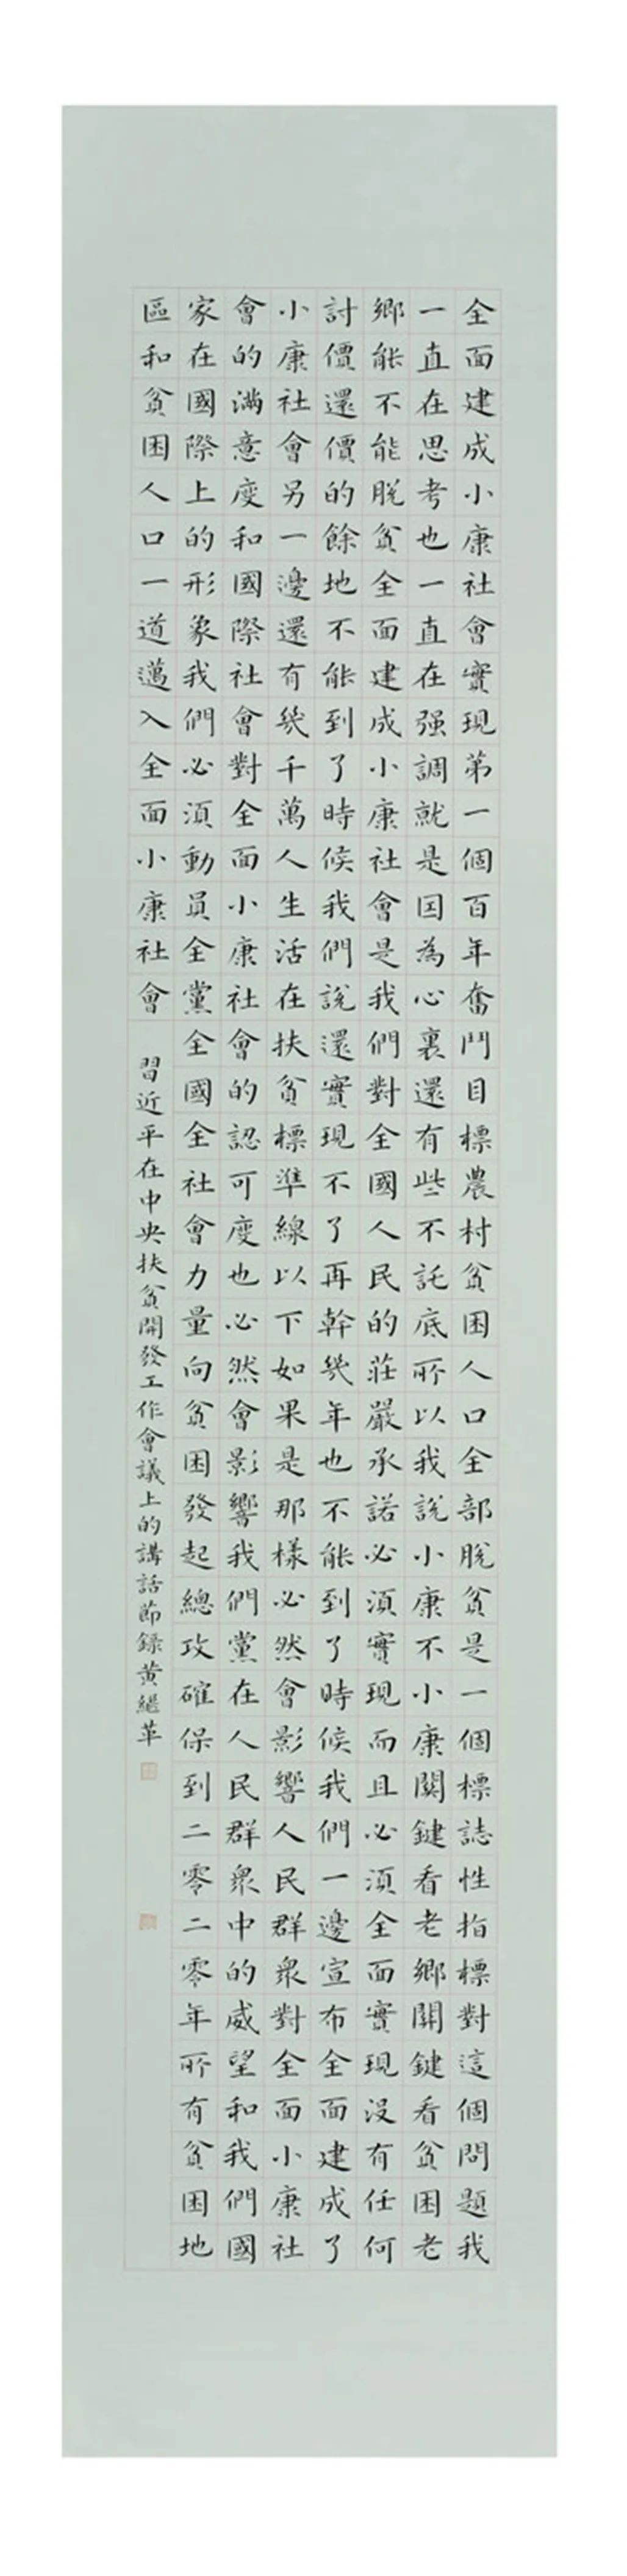 全面建成小康社會實現第一個百年奮鬥目標農村貧困人口全部脫貧是一個標誌性指標對這個問題我
一直在思考也一直在强調就是因為心裏還有些不託底所以我說小康不小康關鍵看老鄉關鍵看貧困老
鄉能不能脫貧全面建成小康社會是我們對全國人民的莊嚴承諾必須實現而且必須全面實現沒有任何
討價還價的餘地不能到了時候我們說還實現不了再幹幾年也不能到了時候我們一邊宣布全面建成了
小康社會另一邊還有幾千萬人生活在扶貧標準線以下如果是那樣必然會影響人民群衆對全面小康社
會的滿意度和國際社會對全面小康社會的認可度也必然會影響我們黨在人民群衆中的威望和我們國
家在國際上的形象我們必須動員全黨全國全社會力量向貧困發起總攻確保到二零二零年所有貧困地
區和貧困人口一道邁入全面小康社會 習近平在中央扶貧開發工作會議上的講話節錄黄繼革